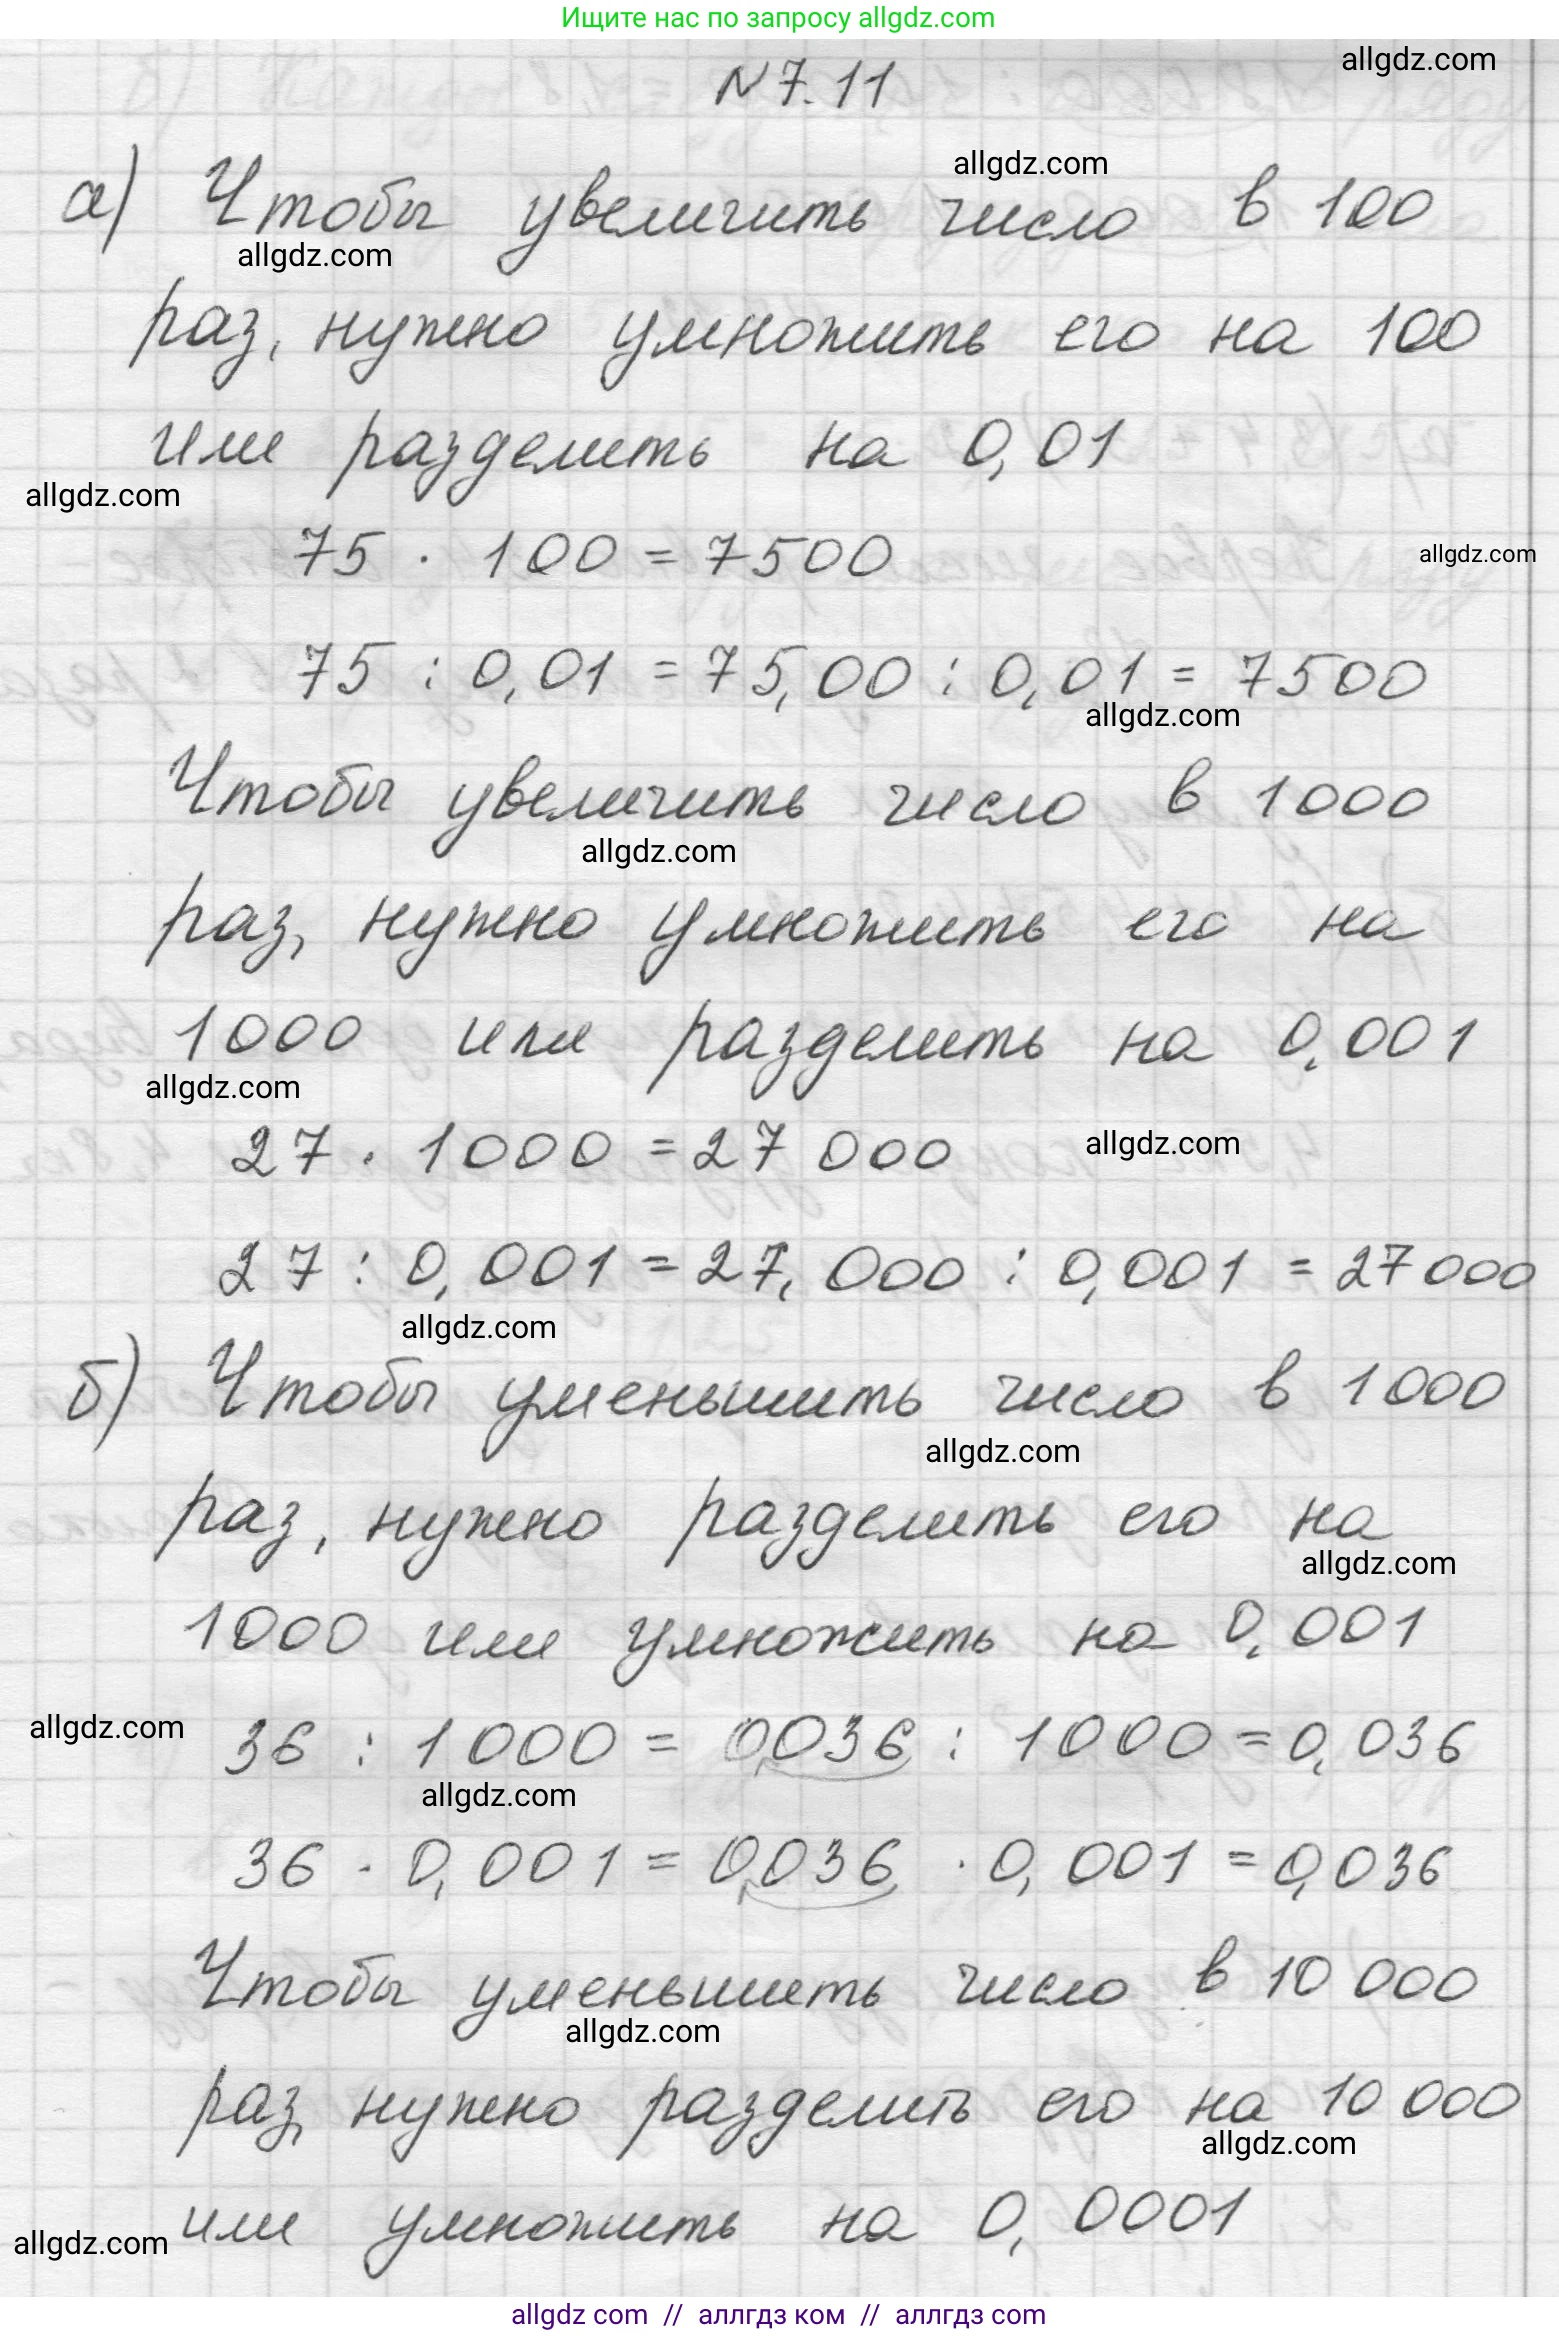 Ищите нас по запросу allgdz.com
allgdz.com
N 7.11
allgdz.com
а) Чтобы увеличить число в 100
allgdz.com
раз, нужно умножить его на 100
или разделить на 0,01
allgdz.com
75 · 100 = 7500
allgdz.com
75 : 0,01 = 75,00 : 0,01 = 7500
allgdz.com
Чтобы увеличить число в 1000
allgdz.com
раз, нужно умножить его на
1000 или разделить на 0,001
allgdz.com
27 · 1000 = 27 000
allgdz.com
27 : 0,001 = 27,000 : 0,001 = 27000
allgdz.com
б) Чтобы уменьшить число в 1000
allgdz.com
раз, нужно разделить его на
allgdz.com
1000 или умножить на 0,001
allgdz.com
36 : 1000 = 0,036, : 1000 = 0,036
allgdz.com
36 · 0,001 = 0,036, · 0,001 = 0,036
Чтобы уменьшить число в 10 000
allgdz.com
раз, нужно разделить его на 10 000
allgdz.com
или умножить на 0,0001
allgdz.com
allgdz com // аллгдз ком // аллгдз com